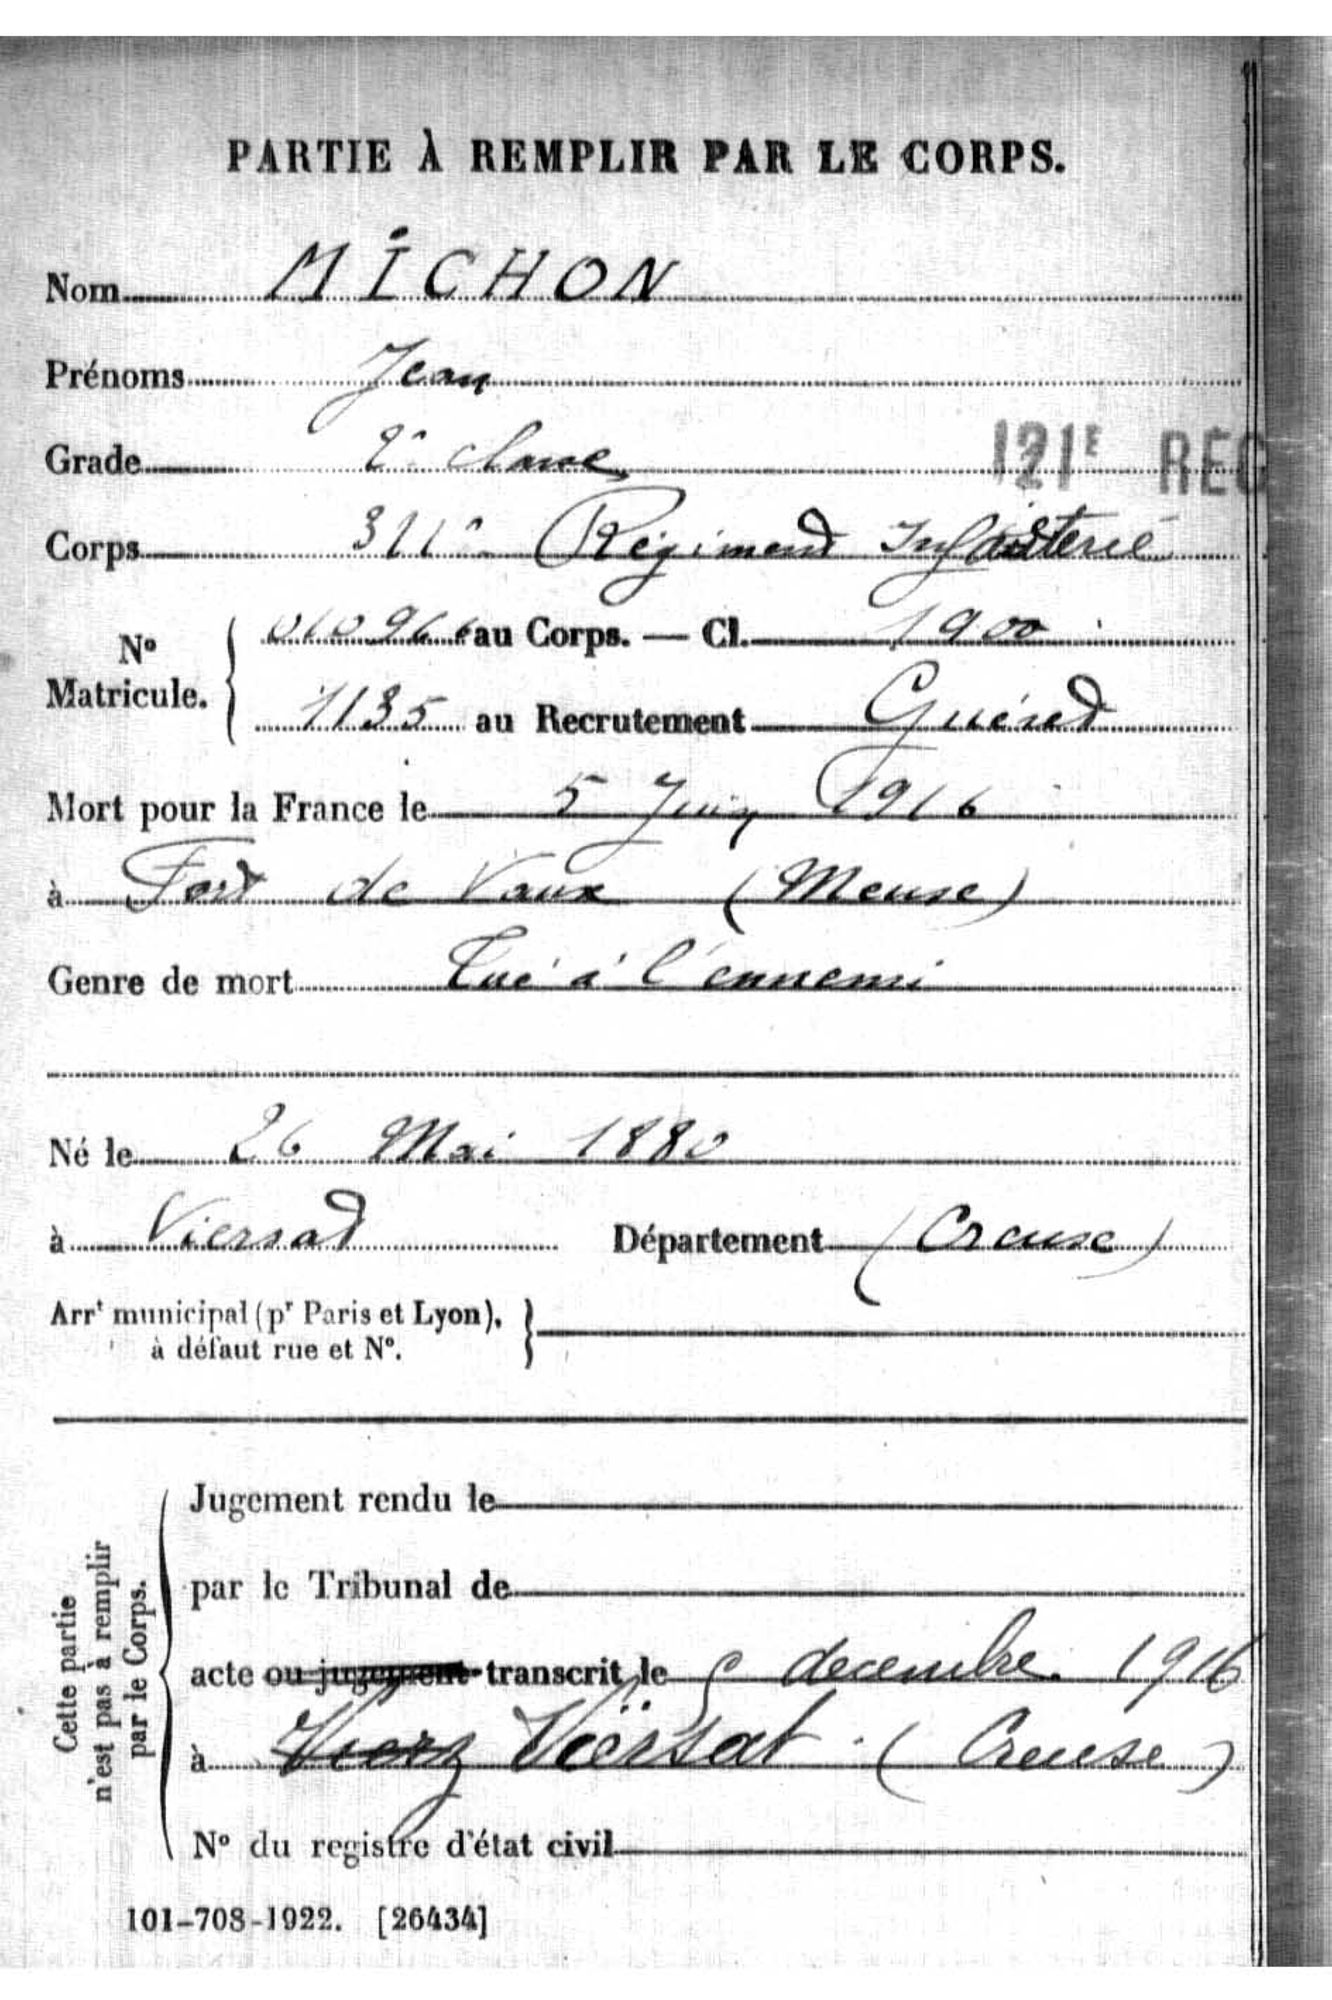 PARTIE À REMPLIR PAR LE CORPS.
Nom MICHON
Prénoms Jean
Grade 2e classe
121E REG
Corps 311e Régiment Infanterie
No Matricule. { au Corps. — Cl. 1900
1135 au Recrutement Guéret
Mort pour la France le 5 Juin 1916
à Fort de Vaux (Meuse)
Genre de mort Tué à l'ennemi
Né le 26 Mai 1880
à Viersat Département (Creuse)
Arrt municipal (pr Paris et Lyon), }
à défaut rue et No.
Cette partie
n'est pas à remplir
par le Corps.
Jugement rendu le
par le Tribunal de
acte ou jugement transcrit le décembre 1916
à Viersat (Creuse)
No du registre d'état civil
101-708-1922. [26434]